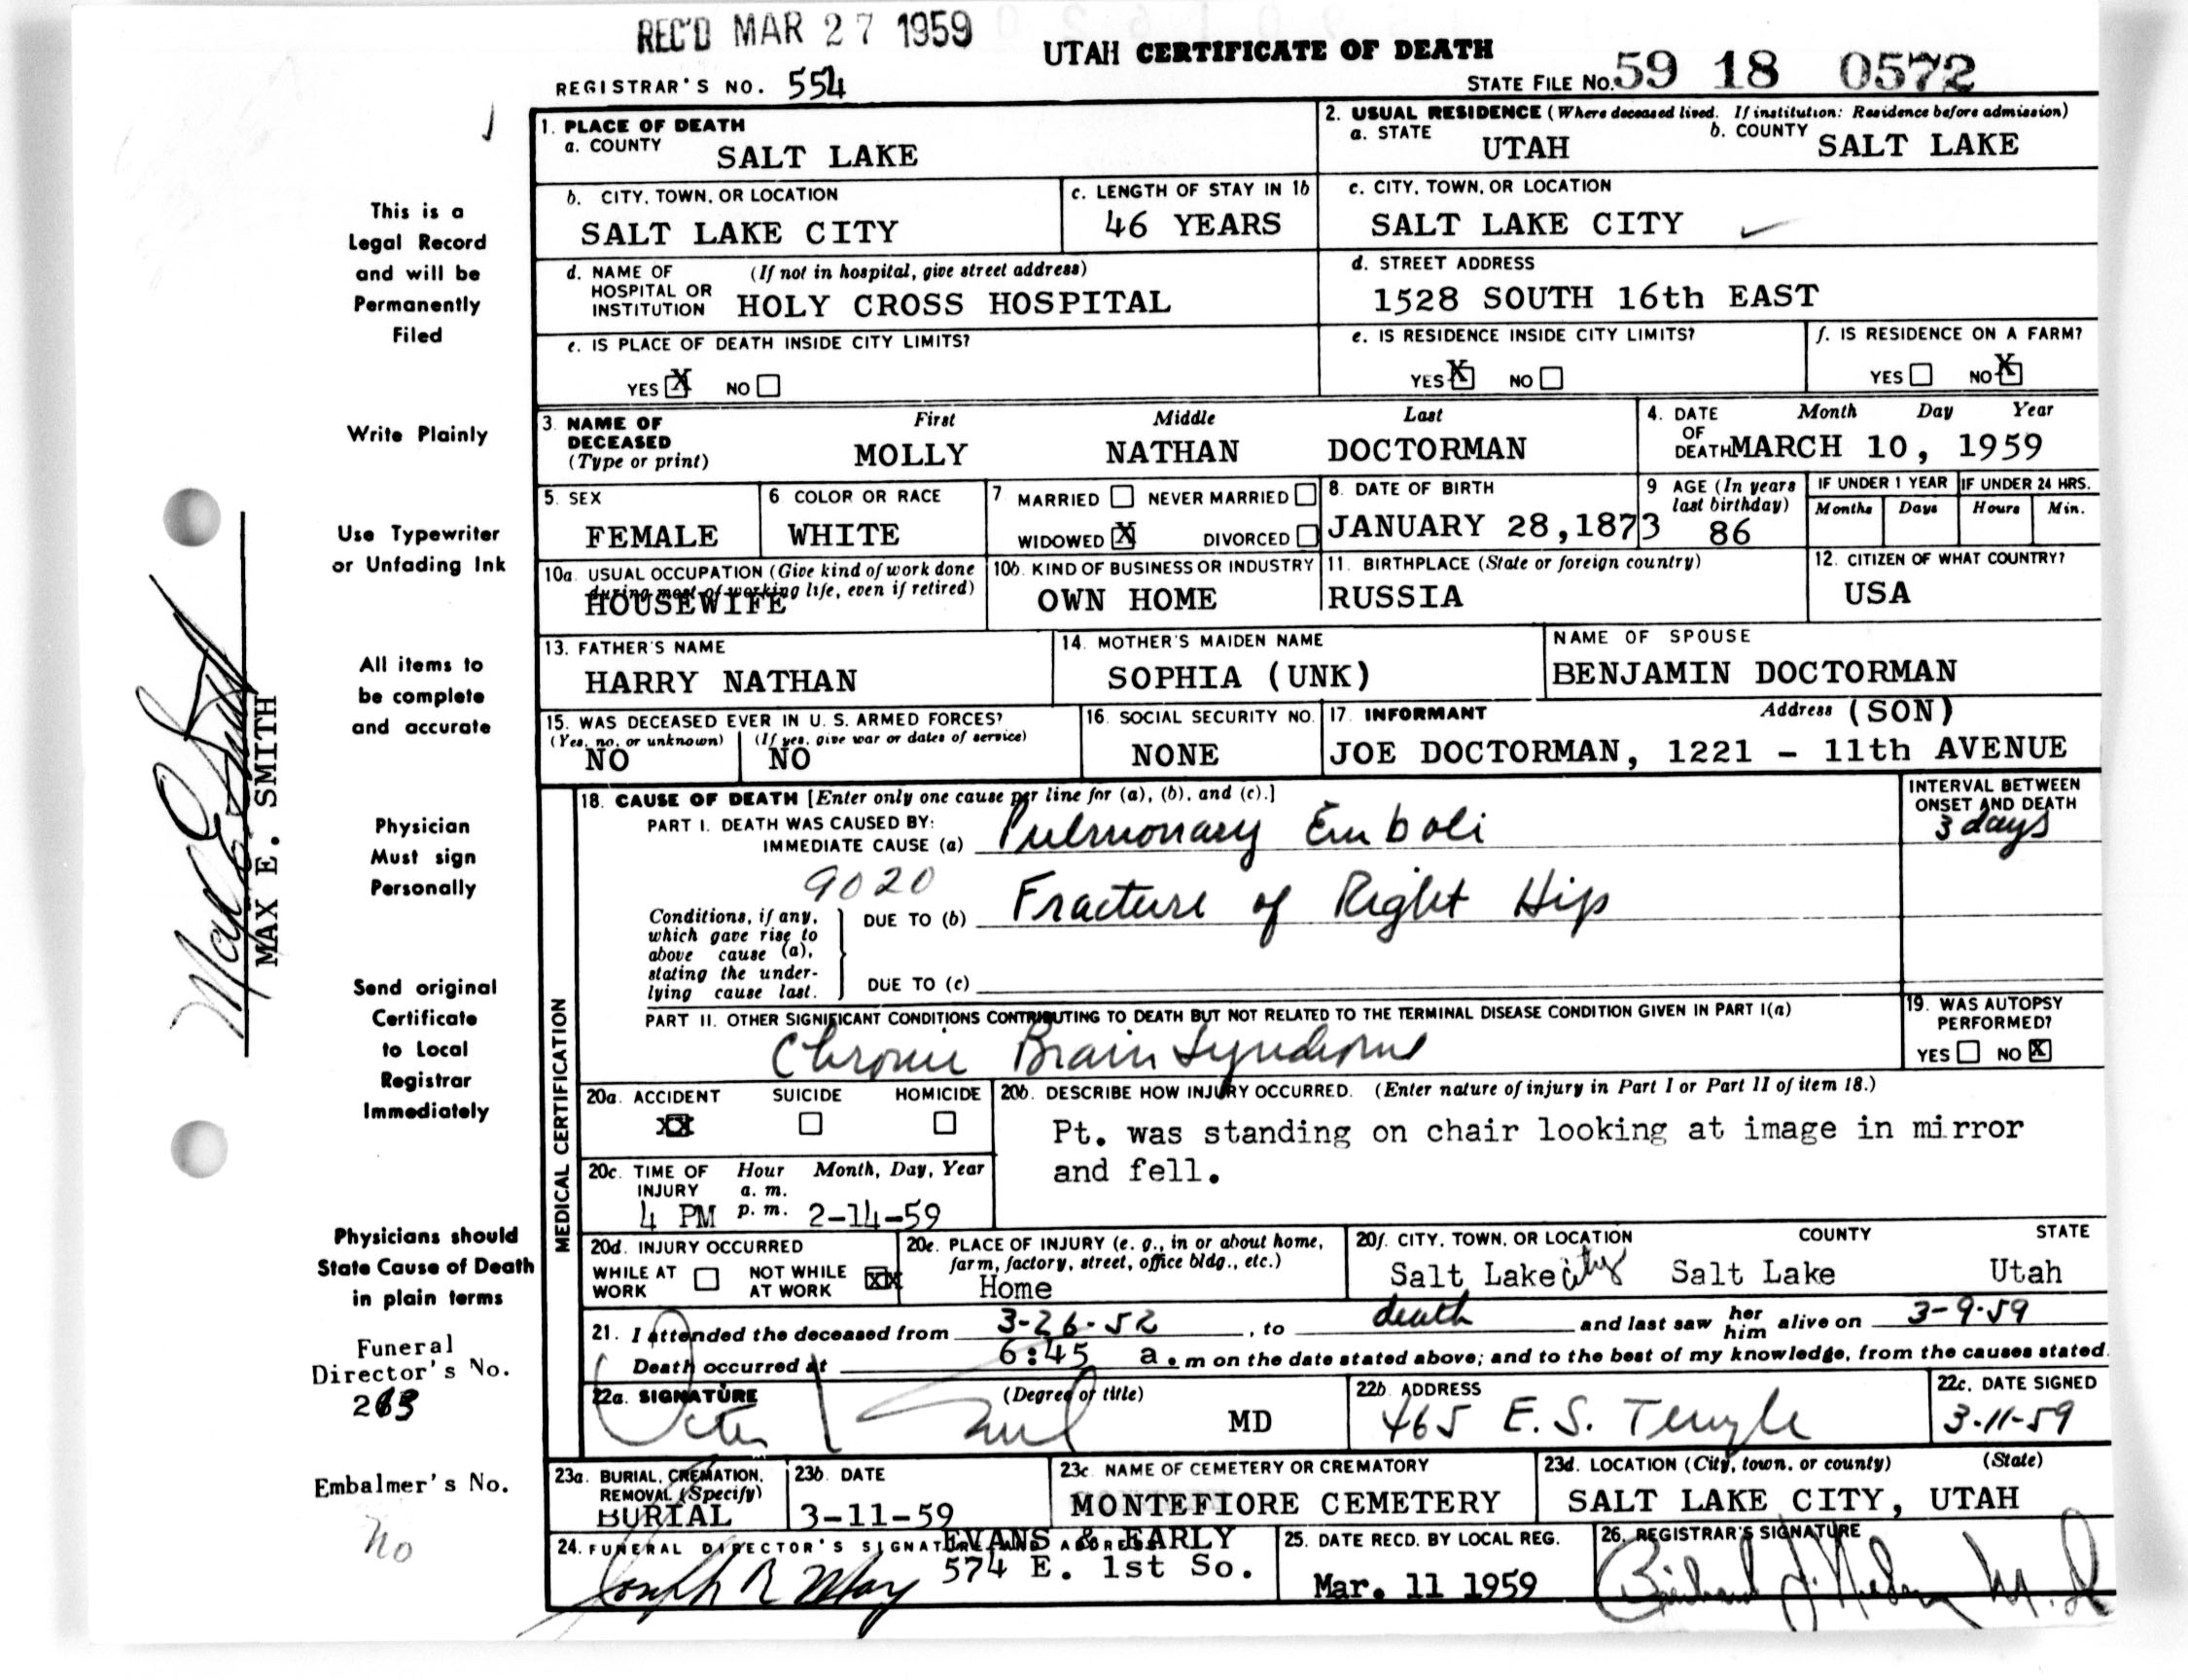 REC'D MAR 27 1959
UTAH CERTIFICATE OF DEATH
REGISTRAR'S NO. 554
STATE FILE NO. 59 18 0572
1. PLACE OF DEATH
a. COUNTY SALT LAKE
2. USUAL RESIDENCE (Where deceased lived. If institution: Residence before admission)
a. STATE UTAH b. COUNTY SALT LAKE
b. CITY, TOWN, OR LOCATION SALT LAKE CITY
c. LENGTH OF STAY IN 1b 46 YEARS
c. CITY, TOWN, OR LOCATION SALT LAKE CITY
d. NAME OF HOSPITAL OR INSTITUTION (If not in hospital, give street address) HOLY CROSS HOSPITAL
d. STREET ADDRESS 1528 SOUTH 16th EAST
e. IS PLACE OF DEATH INSIDE CITY LIMITS?
YES X NO
e. IS RESIDENCE INSIDE CITY LIMITS?
YES X NO
f. IS RESIDENCE ON A FARM?
YES NO X
3. NAME OF DECEASED (Type or print)
First Middle Last
MOLLY NATHAN DOCTORMAN
4. DATE OF DEATH Month Day Year
MARCH 10, 1959
5. SEX FEMALE
6 COLOR OR RACE WHITE
7 MARRIED NEVER MARRIED
WIDOWED X DIVORCED
8. DATE OF BIRTH JANUARY 28,1873
9 AGE (In years last birthday) 86
IF UNDER 1 YEAR Months Days
IF UNDER 24 HRS. Hours Min.
10a. USUAL OCCUPATION (Give kind of work done during most of working life, even if retired) HOUSEWIFE
10b. KIND OF BUSINESS OR INDUSTRY OWN HOME
11. BIRTHPLACE (State or foreign country) RUSSIA
12. CITIZEN OF WHAT COUNTRY? USA
13. FATHER'S NAME HARRY NATHAN
14. MOTHER'S MAIDEN NAME SOPHIA (UNK)
NAME OF SPOUSE BENJAMIN DOCTORMAN
15. WAS DECEASED EVER IN U. S. ARMED FORCES?
(Yes, no, or unknown) NO
(If yes, give war or dates of service) NO
16. SOCIAL SECURITY NO. NONE
17. INFORMANT Address (SON)
JOE DOCTORMAN, 1221 - 11th AVENUE
MEDICAL CERTIFICATION
18. CAUSE OF DEATH [Enter only one cause per line for (a), (b), and (c).]
INTERVAL BETWEEN ONSET AND DEATH
PART I. DEATH WAS CAUSED BY:
IMMEDIATE CAUSE (a) Pulmonary Emboli 3 days
9020
Conditions, if any, which gave rise to above cause (a), stating the underlying cause last.
DUE TO (b) Fracture of Right Hip
DUE TO (c)
PART II. OTHER SIGNIFICANT CONDITIONS CONTRIBUTING TO DEATH BUT NOT RELATED TO THE TERMINAL DISEASE CONDITION GIVEN IN PART I(a)
Chronic Brain Syndrome
19. WAS AUTOPSY PERFORMED?
YES NO X
20a. ACCIDENT SUICIDE HOMICIDE
XX
20b. DESCRIBE HOW INJURY OCCURRED. (Enter nature of injury in Part I or Part II of item 18.)
Pt. was standing on chair looking at image in mirror
and fell.
20c. TIME OF INJURY Hour Month, Day, Year
a. m.
4 PM p. m. 2-14-59
20d. INJURY OCCURRED
WHILE AT WORK NOT WHILE AT WORK XX
20e. PLACE OF INJURY (e. g., in or about home, farm, factory, street, office bldg., etc.)
Home
20f. CITY, TOWN, OR LOCATION COUNTY STATE
Salt Lake city Salt Lake Utah
21. I attended the deceased from 3-26-52, to death and last saw her him alive on 3-9-59
Death occurred at 6:45 a.m on the date stated above; and to the best of my knowledge, from the causes stated.
22a. SIGNATURE (Degree or title)
MD
22b. ADDRESS 465 E. S. Temple
22c. DATE SIGNED 3-11-59
23a. BURIAL, CREMATION, REMOVAL (Specify) BURIAL
23b. DATE 3-11-59
23c. NAME OF CEMETERY OR CREMATORY MONTEFIORE CEMETERY
23d. LOCATION (City, town, or county) (State)
SALT LAKE CITY, UTAH
24. FUNERAL DIRECTOR'S SIGNATURE AND ADDRESS
EVANS & EARLY
574 E. 1st So.
25. DATE RECD. BY LOCAL REG.
Mar. 11 1959
26. REGISTRAR'S SIGNATURE
M.D
This is a
Legal Record
and will be
Permanently
Filed
Write Plainly
Use Typewriter
or Unfading Ink
All items to
be complete
and accurate
Physician
Must sign
Personally
Send original
Certificate
to Local
Registrar
Immediately
Physicians should
State Cause of Death
in plain terms
Funeral
Director's No.
Embalmer's No.
No
Max E. Smith
MAX E. SMITH